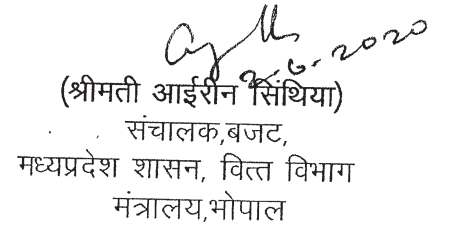 2-6-2020
(श्रीमती आईरीन सिंथिया)
संचालक,बजट,
मध्यप्रदेश शासन, वित्त विभाग
मंत्रालय,भोपाल